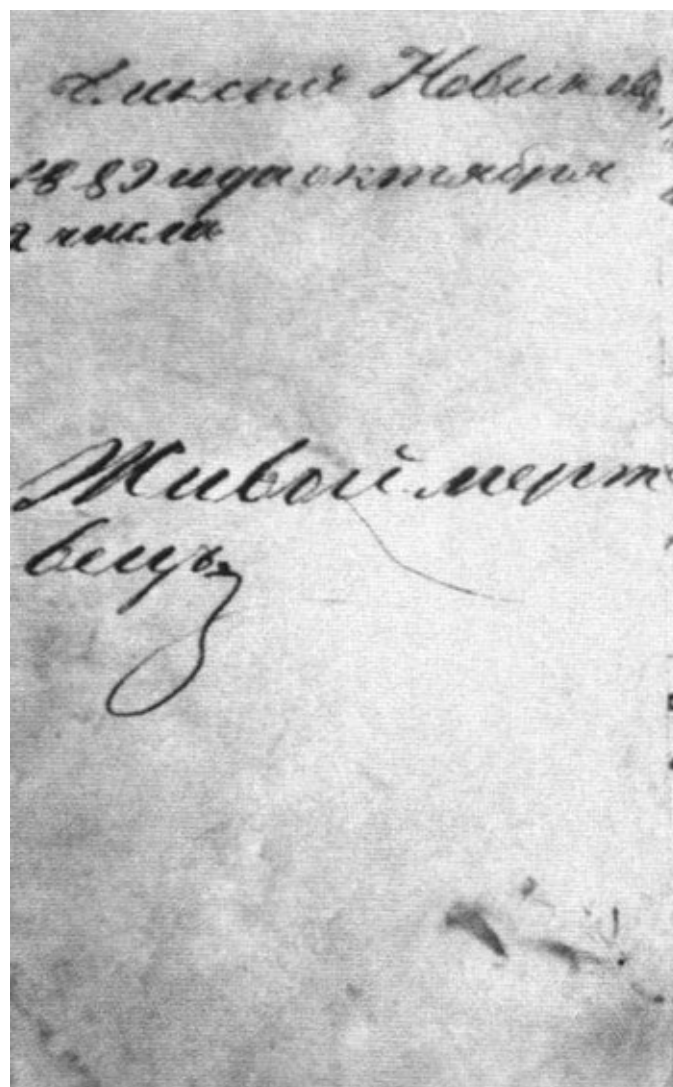 Алексей Новиков
1889 года октября
2 числа
Живой мерт
вецъ